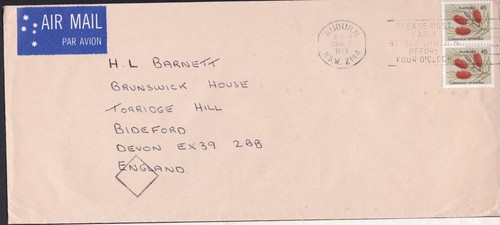 AIR MAIL
PAR AVION
AUBURN
N.S.W. 2144
PLEASE POST
EARLY
BEFORE
FOUR O'CLOCK
Australia 45
Australia 45
H. L BARNETT
BRUNSWICK HOUSE
TORRIDGE HILL
BIDEFORD
DEVON EX39 2BB
ENGLAND